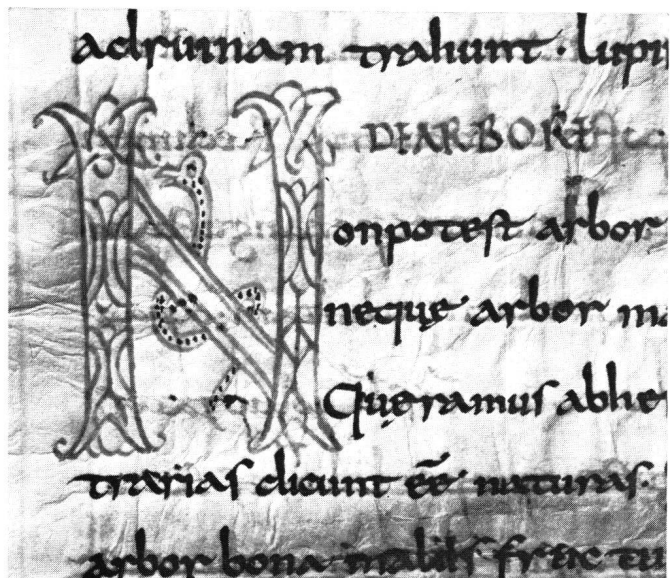 adruinam trahunt · lupi
DEARBORE
Nonpotest arbor
nequę arbor ma
Quęramus abhe
trarias dicunt eē naturas.
arbor bona